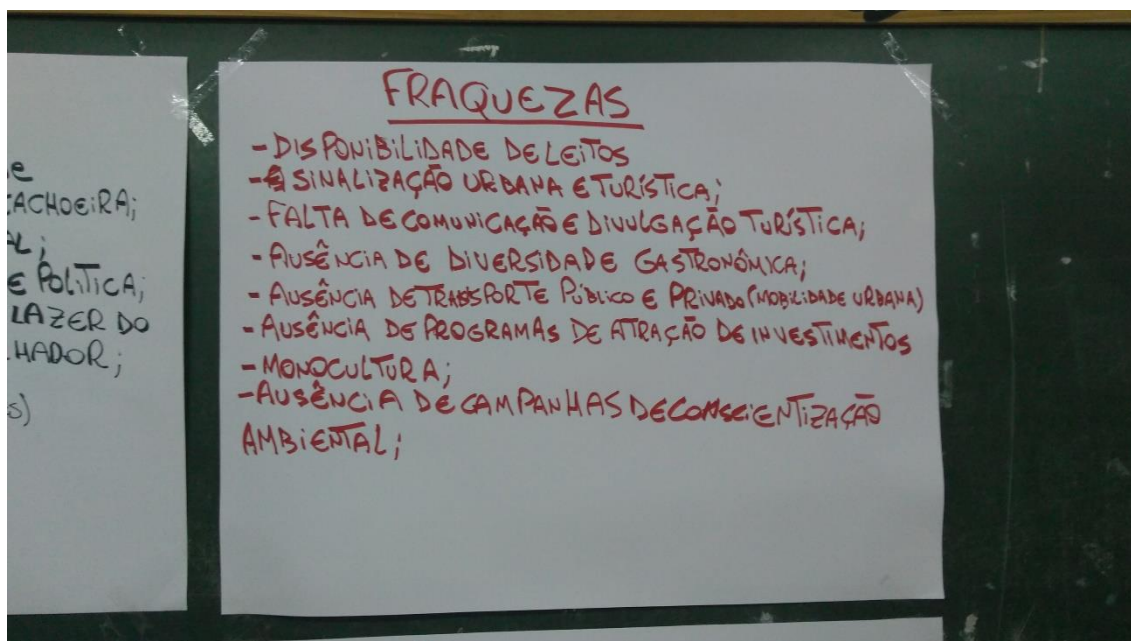 E
CACHOEIRA;
AL;
E POLÍTICA;
LAZER DO
LHADOR;
s)
FRAQUEZAS
- DISPONIBILIDADE DE LEITOS
- SINALIZAÇÃO URBANA E TURÍSTICA;
- FALTA DE COMUNICAÇÃO E DIVULGAÇÃO TURÍSTICA;
- AUSÊNCIA DE DIVERSIDADE GASTRONÔMICA;
- AUSÊNCIA DE TRANSPORTE PÚBLICO E PRIVADO (MOBILIDADE URBANA)
- AUSÊNCIA DE PROGRAMAS DE ATRAÇÃO DE INVESTIMENTOS
- MONOCULTURA;
- AUSÊNCIA DE CAMPANHAS DE CONSCIENTIZAÇÃO
AMBIENTAL;